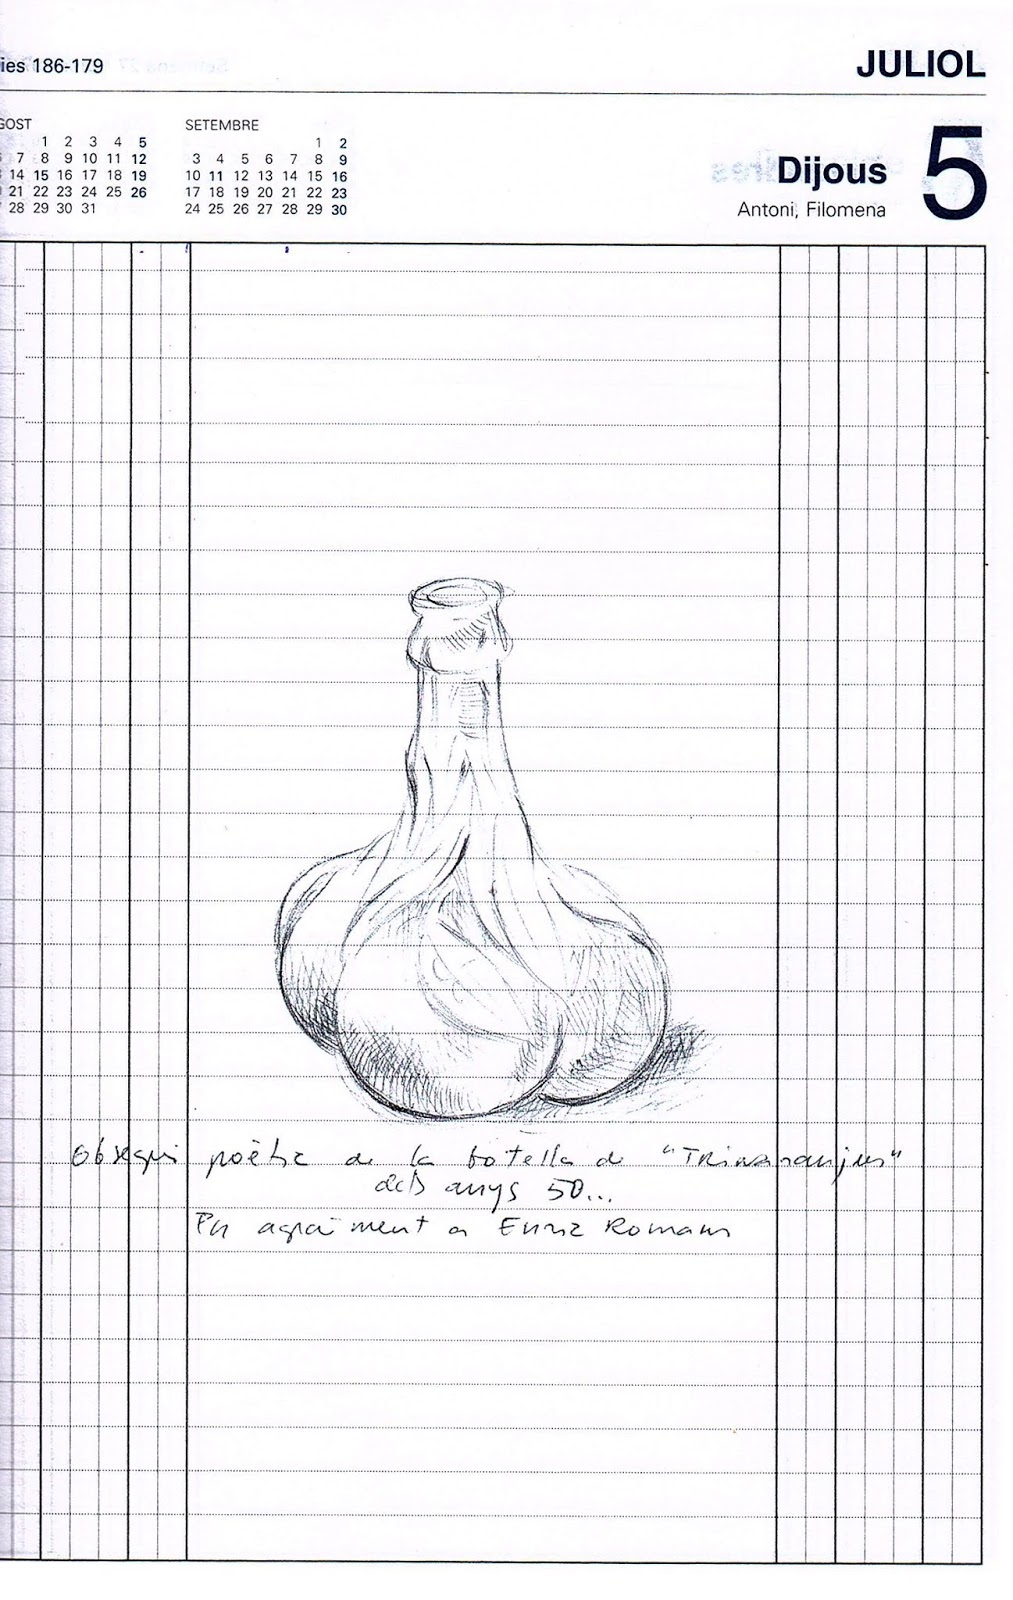 ies 186-179
JULIOL
GOST
1 2 3 4 5
7 8 9 10 11 12
14 15 16 17 18 19
21 22 23 24 25 26
28 29 30 31
SETEMBRE
1 2
3 4 5 6 7 8 9
10 11 12 13 14 15 16
17 18 19 20 21 22 23
24 25 26 27 28 29 30
Dijous
5
Antoni, Filomena
Obsequi poètic de la botella de "Trinaranjus"
dels anys 50...
En agraiment a Enric Romans